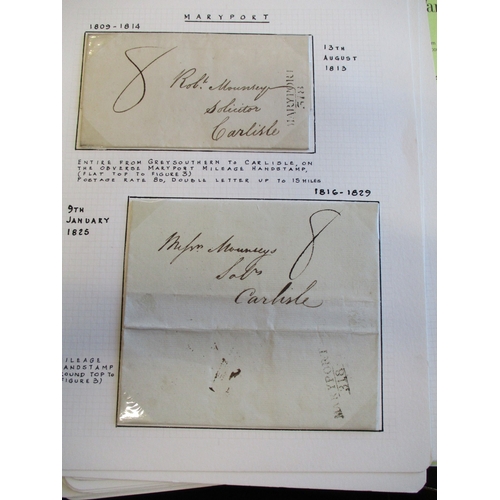 MARYPORT
1809-1814
13TH
AUGUST
1813
8
Robt Mounsey
Solicitor
Carlisle
MARYPORT
318
ENTIRE FROM GREYSOUTHERN TO CARLISLE, ON
THE OBVERSE MARYPORT MILEAGE HANDSTAMP,
(FLAT TOP TO FIGURE 3)
POSTAGE RATE 8D, DOUBLE LETTER UP TO 15 MILES
1816-1829
9TH
JANUARY
1825
8
Messrs Mounseys
Solrs
Carlisle
MARYPORT
318
MILEAGE
HANDSTAMP
ROUND TOP TO
FIGURE 3)